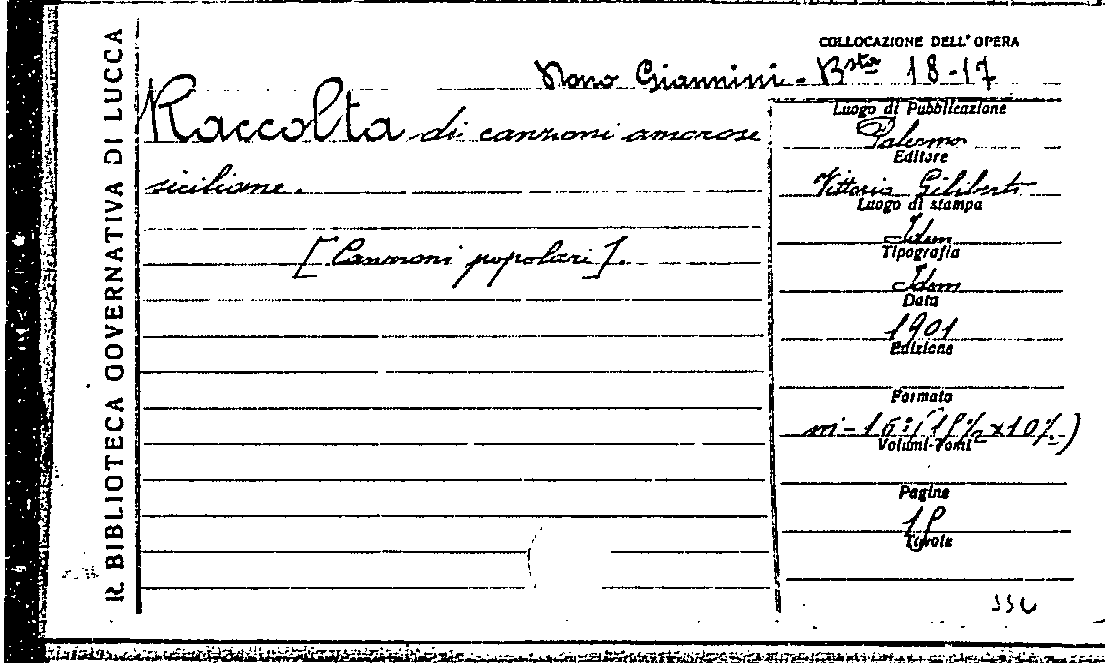 R. BIBLIOTECA GOVERNATIVA DI LUCCA
COLLOCAZIONE DELL'OPERA
Giannini - Bsta 18-17
Raccolta di canzoni amorose
siciliane.
[Canzoni popolari].
Luogo di Pubblicazione
Palermo
Editore
Vittorio Giliberti
Luogo di stampa
Idem
Tipografia
Idem
Data
1901
Edizione
Formato
in-16º
Volumi-Tomi
Pagine
Tavole